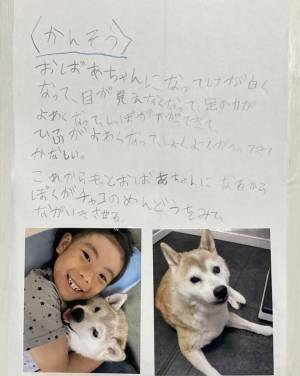 〈かんそう〉
おばあちゃんになってけが白く
なって、目が見えなくなって、足の力が
よわくなって、しっぽが
ひふがよわくなって、しょくよくが
かなしい。
これからもっとおばあちゃんになるから
ぼくがチャコのめんどうをみて、
ながいきさせる